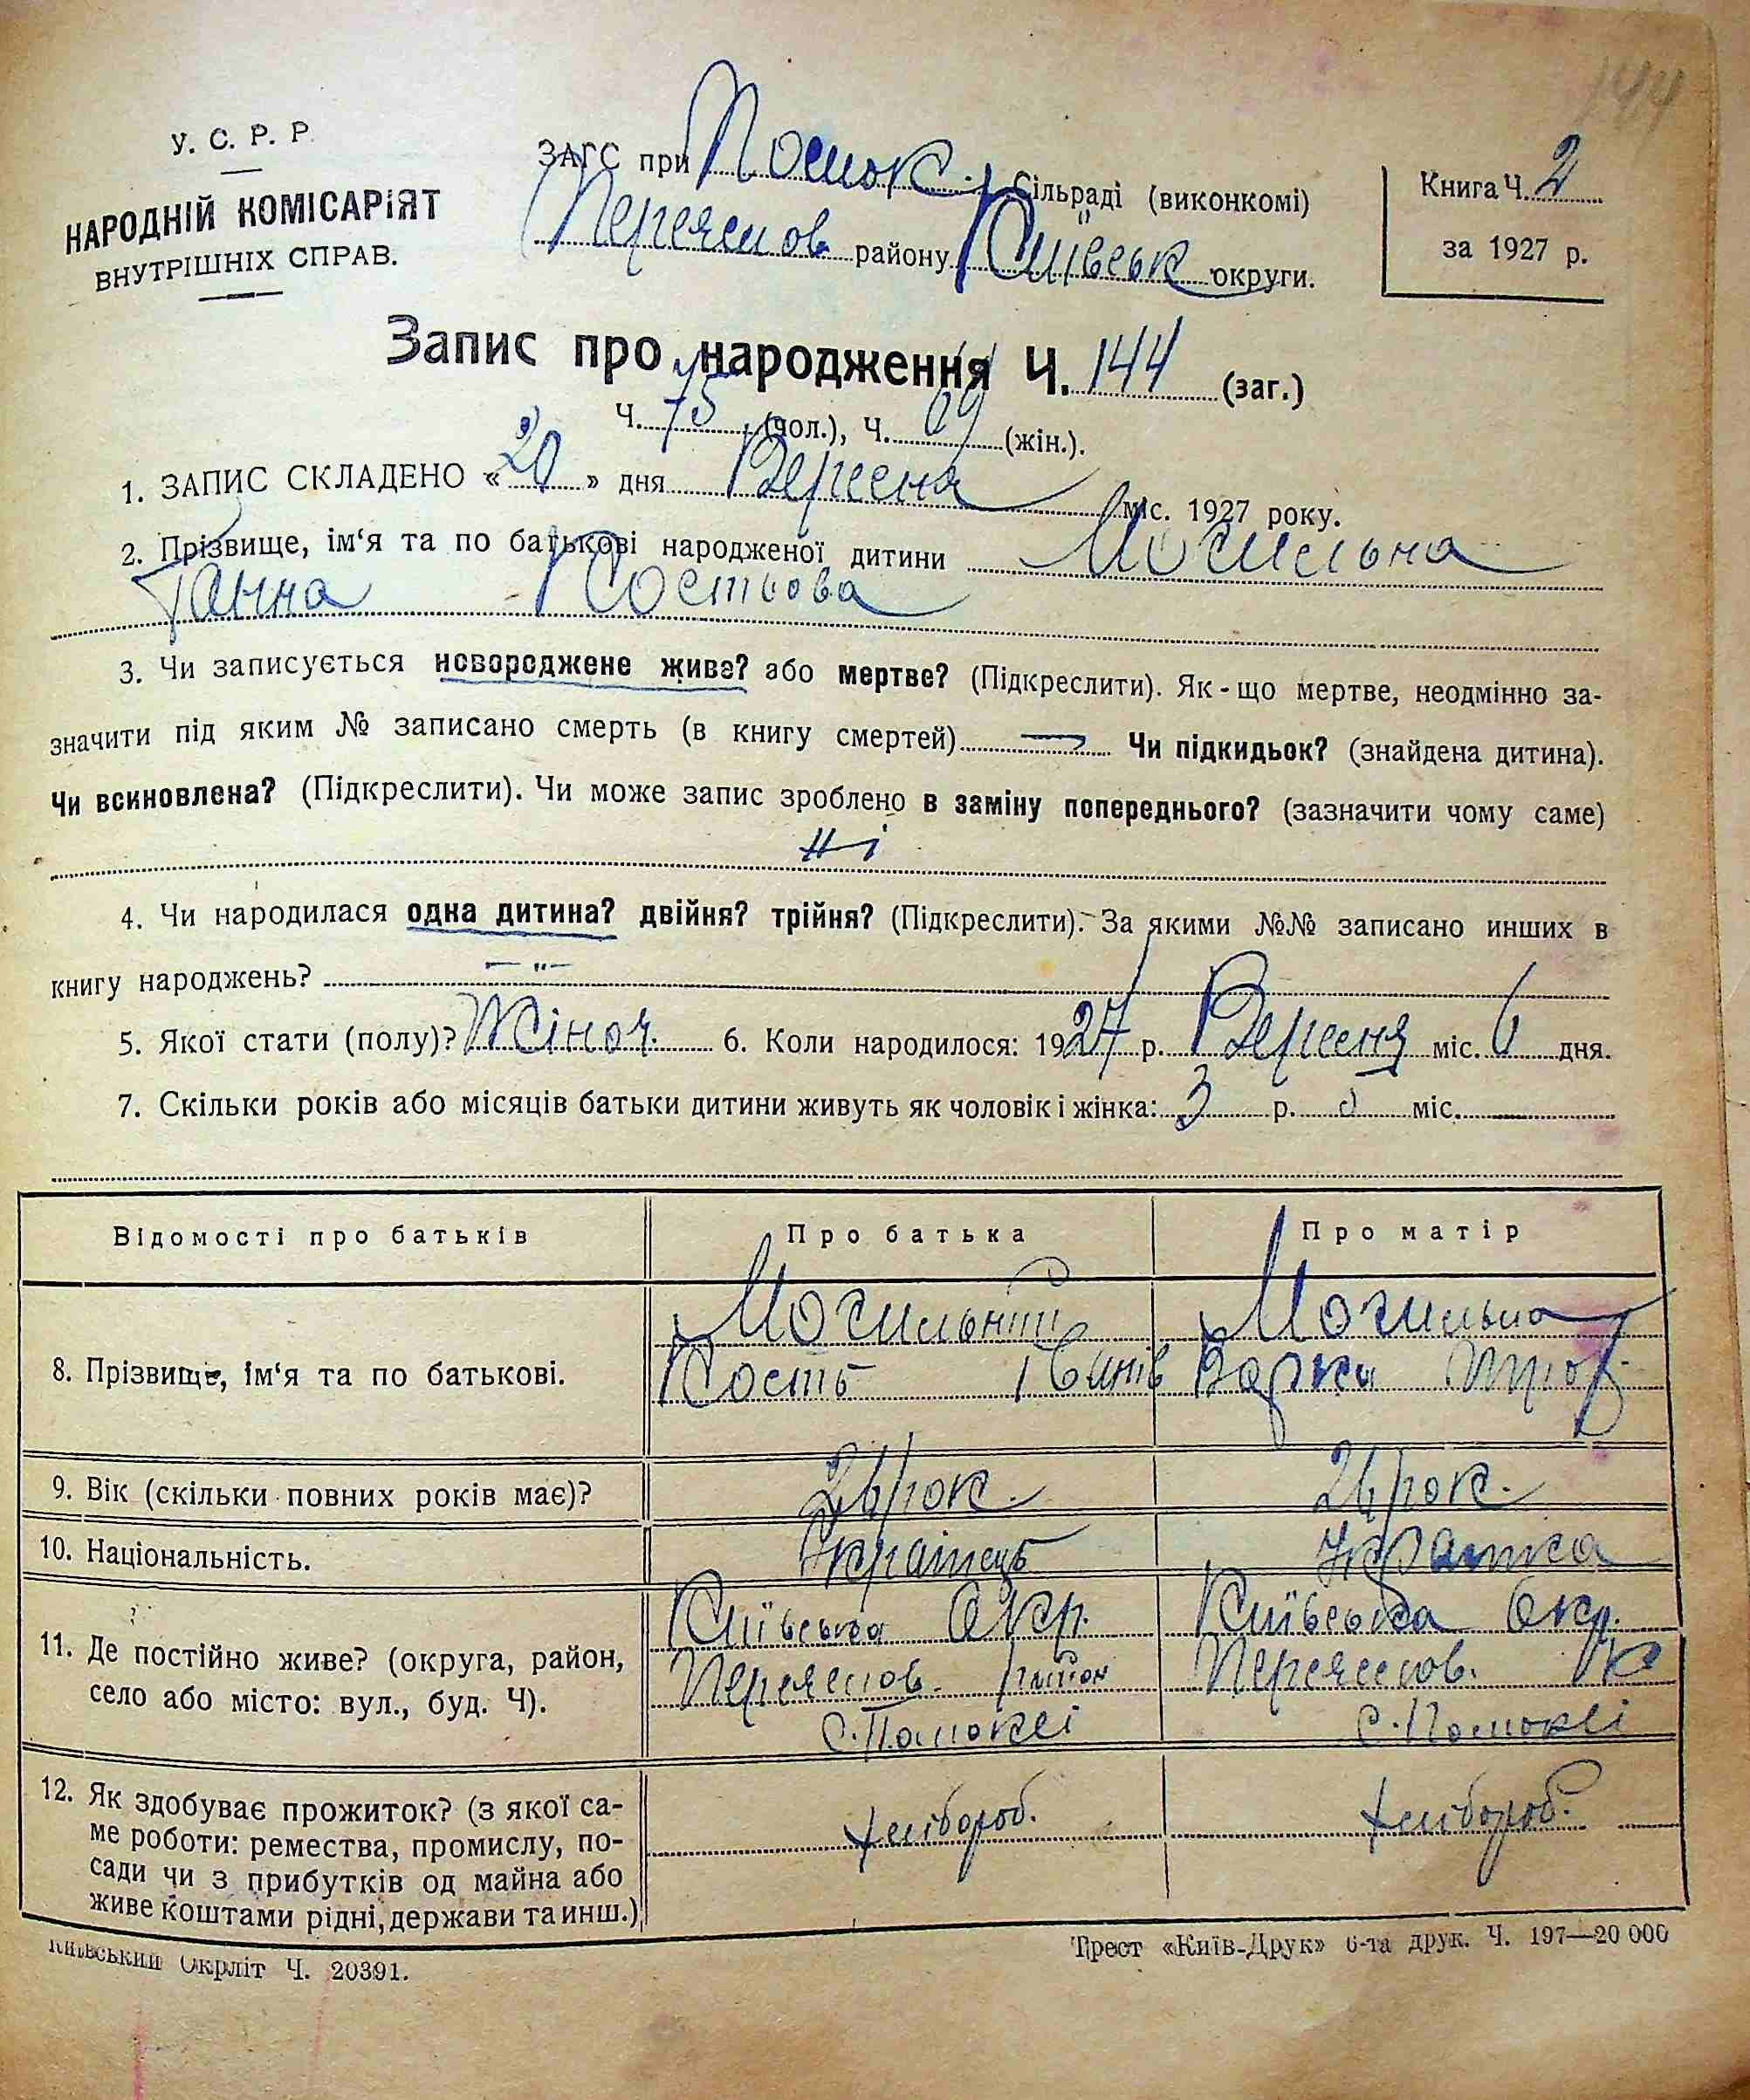 144
У. С. Р. Р.
НАРОДНІЙ КОМІСАРІЯТ
ВНУТРІШНІХ СПРАВ.
ЗАГС при Помок. сільраді (виконкомі)
Переяслов району Київськ округи.
Книга Ч. 2
за 1927 р.
Запис про народження Ч. 144 (заг.)
Ч. 75 (чол.), Ч. 69 (жін.).
1. ЗАПИС СКЛАДЕНО «20» дня Вересня міс. 1927 року.
2. Прізвище, ім‘я та по батькові народженої дитини Могильна
Ганна Костьова
3. Чи записується новороджене живе? або мертве? (Підкреслити). Як-що мертве, неодмінно за-
значити під яким № записано смерть (в книгу смертей) — Чи підкидьок? (знайдена дитина).
Чи всиновлена? (Підкреслити). Чи може запис зроблено в заміну попереднього? (зазначити чому саме)
ні
4. Чи народилася одна дитина? двійня? трійня? (Підкреслити). За якими №№ записано инших в
книгу народжень? — " —
5. Якої стати (полу)? Жіноч. 6. Коли народилося: 1927 р. Вересня міс. 6 дня.
7. Скільки років або місяців батьки дитини живуть як чоловік і жінка: 3 р. міс.
Відомості про батьків Про батька Про матір
8. Прізвище, ім‘я та по батькові.
Могильний
Кость Іванів
Могильна
Варка
9. Вік (скільки повних років має)? 26 рок. 26 рок.
10. Національність. Українець Українка
11. Де постійно живе? (округа, район,
село або місто: вул., буд. Ч).
Київська Окр.
Переяслов. район
с. Помоклі
Київська Окр.
Переяслов. р
с. Помоклі
12. Як здобуває прожиток? (з якої са-
ме роботи: ремества, промислу, по-
сади чи з прибутків од майна або
живе коштами рідні, держави та инш.)
хлібороб.
хлібороб.
Київський Окрліт Ч. 20391.
Трест «Київ-Друк» 6-та друк. Ч. 197—20 000